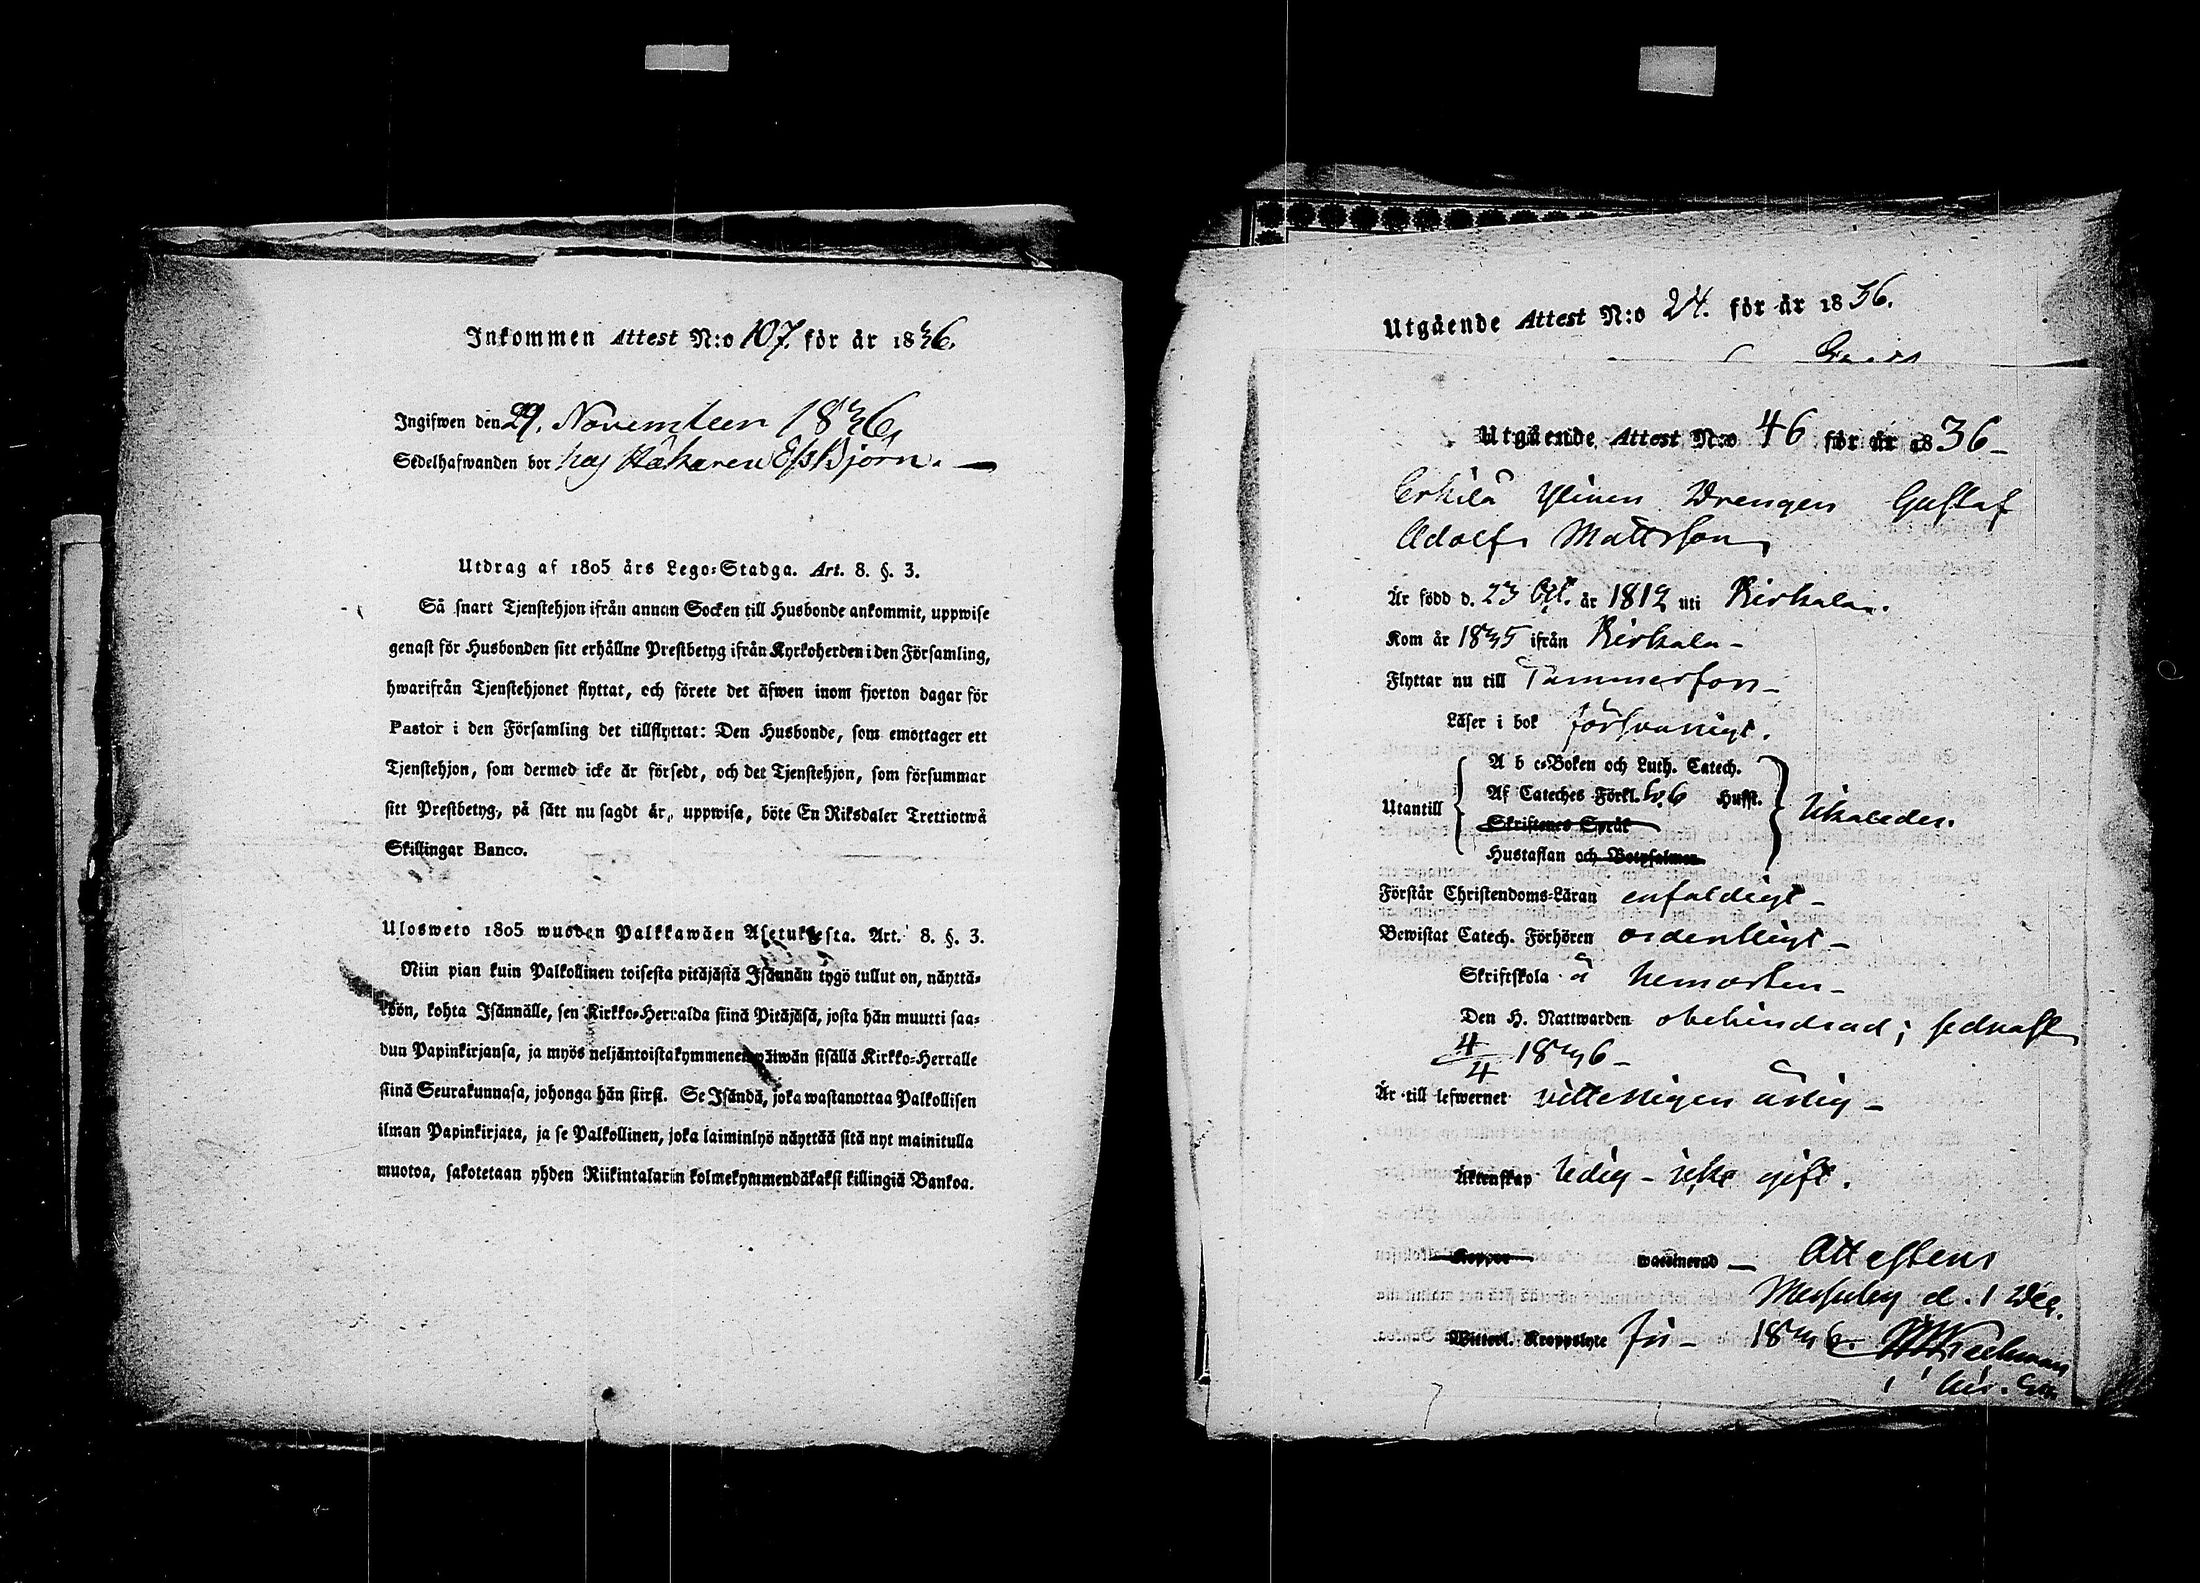 Inkommen Attest N:o 107. för år 1836.
Ingifwen den 29. November 1836,
Sedelhafwanden bor hos Åkaren Essbjörn. —
Utdrag af 1805 års Lego-Stadga. Art. 8. §. 3.
Så snart Tjenstehjon ifrån annan Socken till Husbonde ankommit, uppwise
genast för Husbonden sitt erhållne Prestbetyg ifrån Kyrkoherden i den Församling,
hwarifrån Tjenstehjonet flyttat, och förete det äfwen inom fjorton dagar för
Pastor i den Församling det tillflyttat: Den Husbonde, som emottager ett
Tjenstehjon, som dermed icke är försedt, och det Tjenstehjon, som försummar
sitt Prestbetyg, på sätt nu sagdt är, uppwisa, böte En Riksdaler Trettiotwå
Skillingar Banco.
Ulosweto 1805 wuoden Palkkawäen Asetuksesta. Art. 8. §. 3.
Niin pian kuin Palkollinen toisesta pitäjästä Isännän tygö tullut on, näyttä-
köön, kohta Isännälle, sen Kirkko-Herralda siinä Pitäjäsä, josta hän muutti saa-
dun Papinkirjansa, ja myös neljäntoistakymmenen päiwän sisällä Kirkko-Herralle
siinä Seurakunnasa, johonga hän siirsi. Se Isändä, joka wastanottaa Palkollisen
ilman Papinkirjata, ja se Palkollinen, joka laiminlyö näyttää sitä nyt mainitulla
muotoa, sakotetaan yhden Riikintalarin kolmekymmendäkaksi killingiä Bankoa.
Utgående Attest N:o 24. för år 1836.
Utgående Attest N:o 46 för år 1836 –
Erkilä Ylinen Drengen Gustaf
Adolf Mattsson
Är född d. 23 Oct. år 1812 uti Birkala.
Kom år 1835 ifrån Birkala –
Flyttar nu till Tammerfors –
Läser i bok försvarligt.
A b c-Boken och Luth. Catech.
Utantill Af Cateches Förkl. Husst.
Skriftenes Språk
Hustaflan och Botpsalmer
Förstår Christendoms-Läran enfaldigt –
Bewistat Catech. Förhören ordentligt –
Skriftskola å hemorten –
Den H. Nattwarden obehindrad; sednast
4/4 1836 –
Är till lefwernet ärlig –
Äktenskap ledig – icke gift.
Koppor waccinerad — Attesteras
Messuby d. 1 Dec.
Witterl. Kroppslyte fri – 1836.